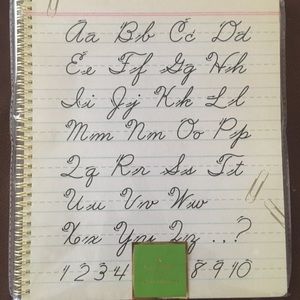 Aa Bb Cc Dd
Ee Ff Gg Hh
Ii Jj Kk Ll
Mm Nn Oo Pp
Qq Rr Ss Tt
Uu Vv Ww
Xx Yy Zz ...?
1 2 3 4 8 9 10